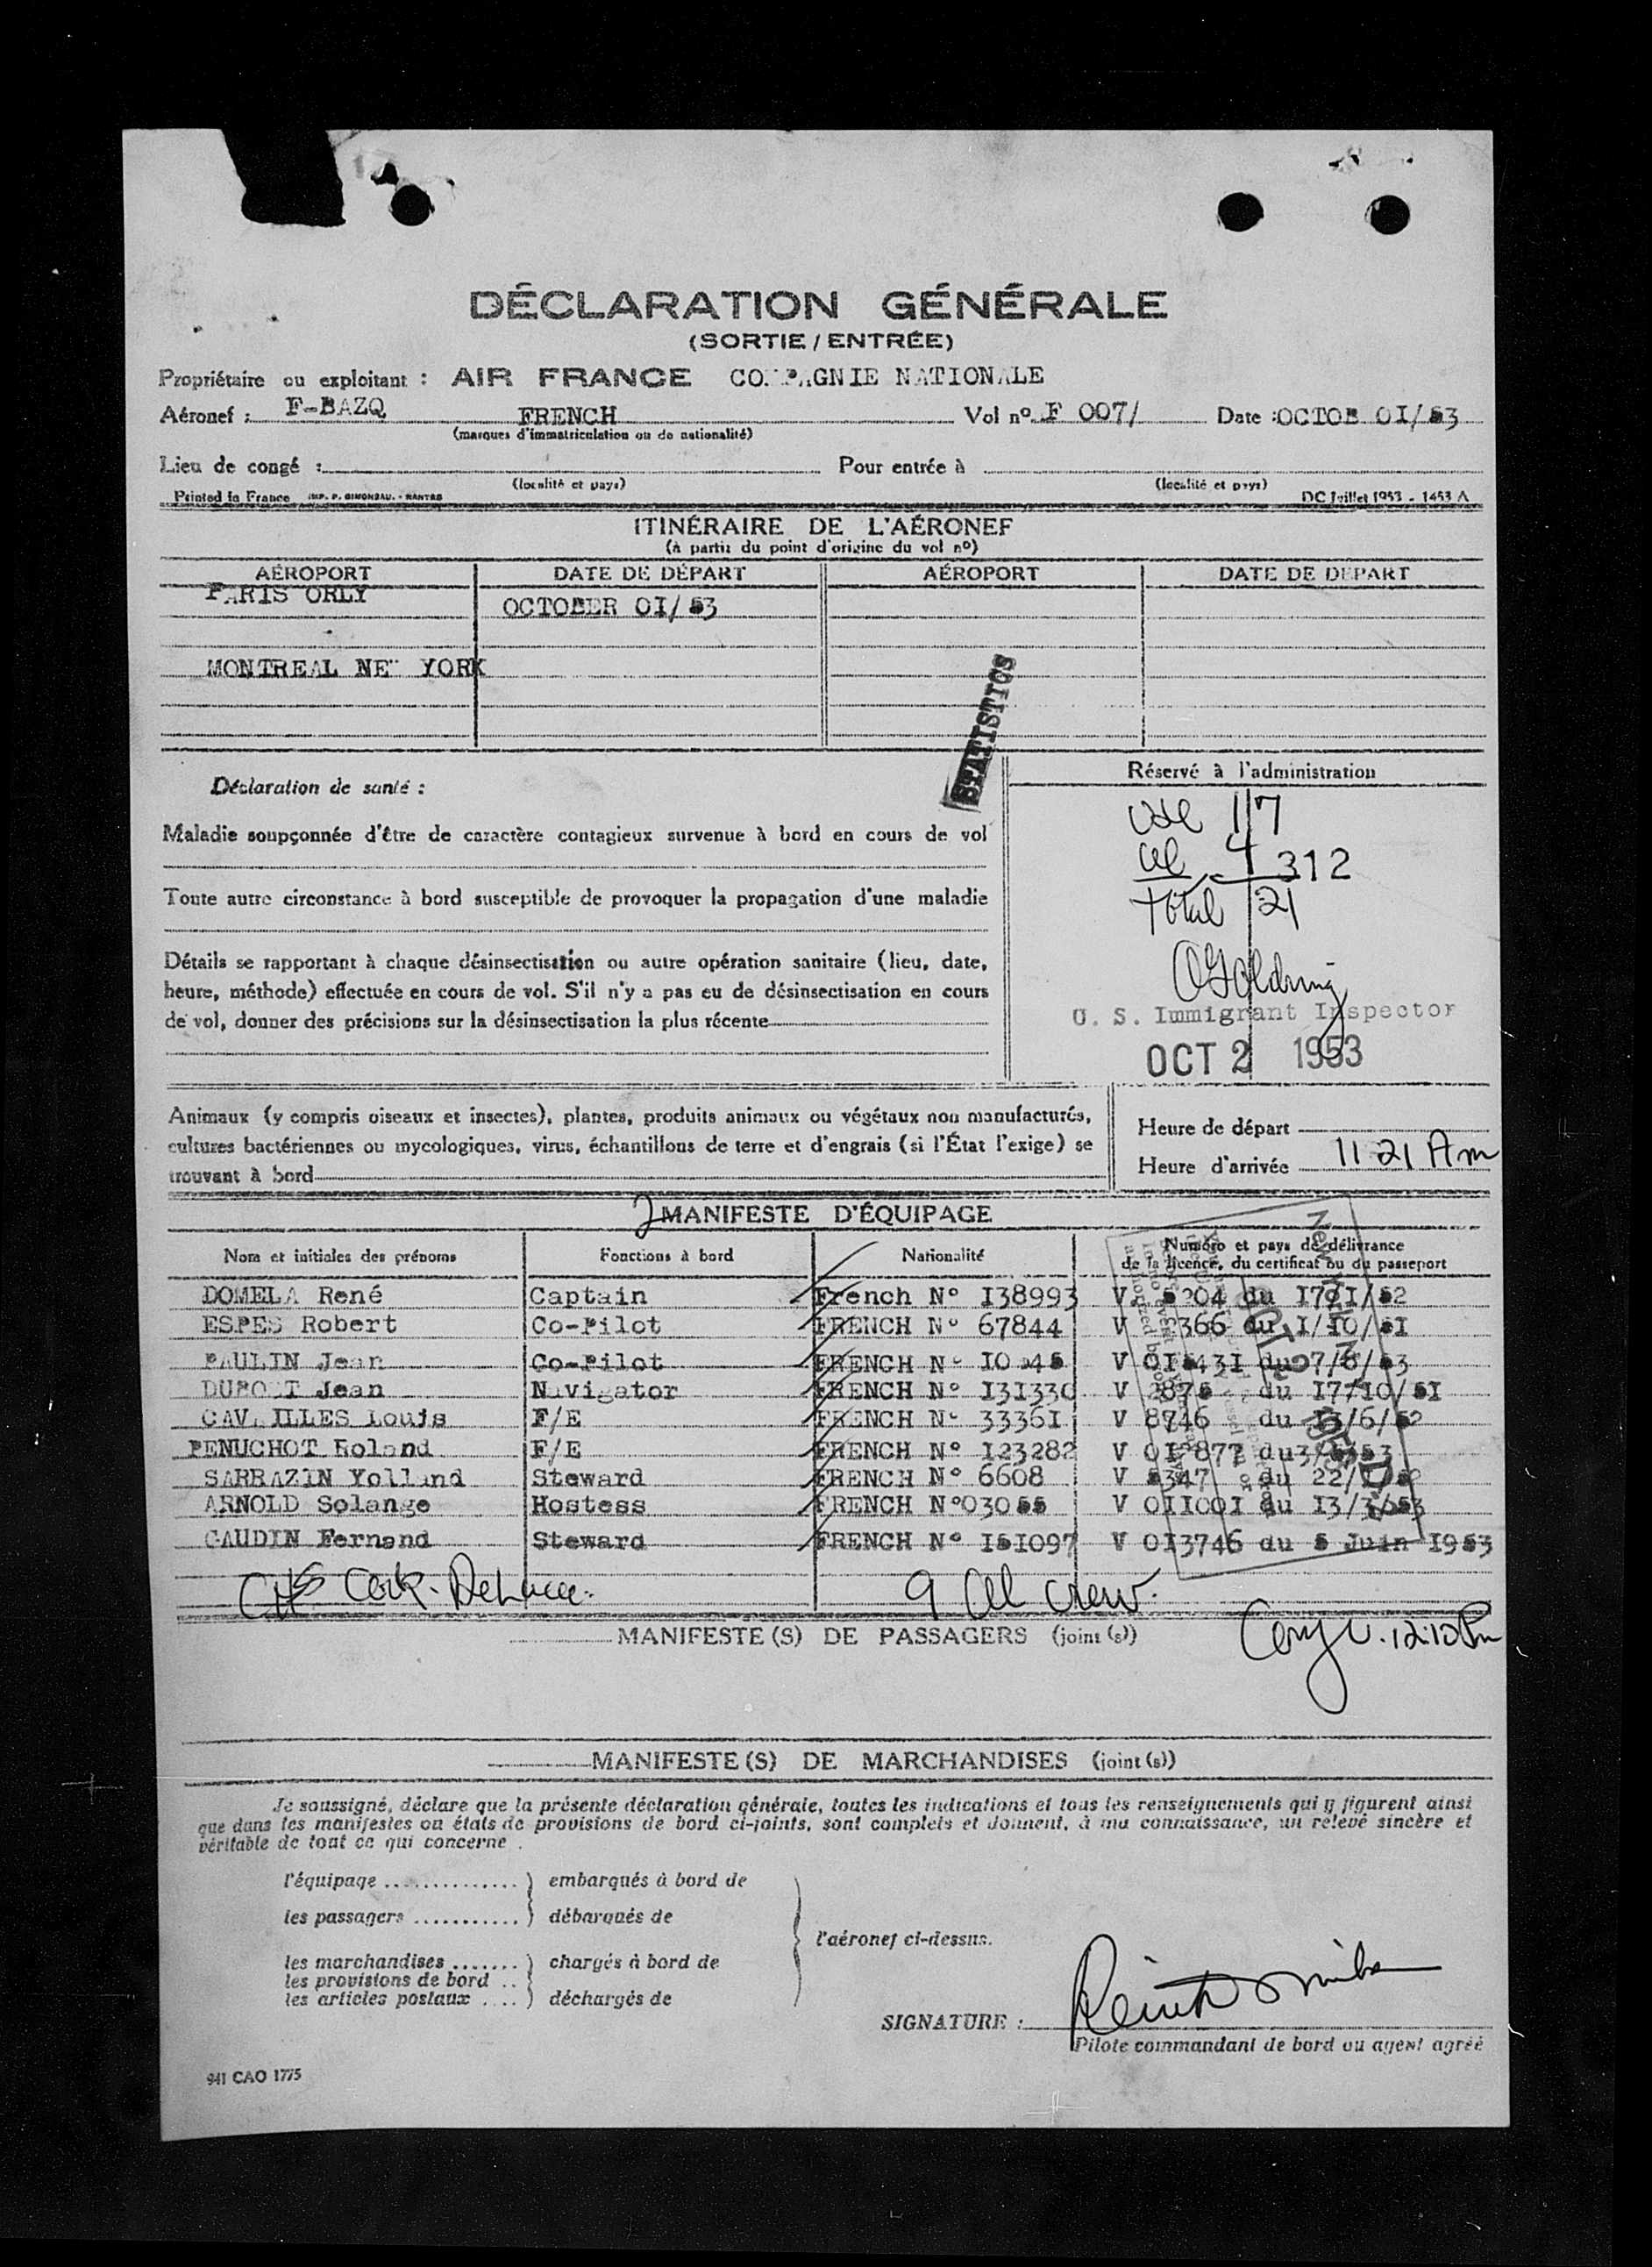 DÉCLARATION GÉNÉRALE
(SORTIE / ENTRÉE)
Propriétaire ou exploitant : AIR FRANCE CO.P.GNIE NATIONALE
Aéronef : F-BAZQ FRENCH Vol nº F 007/ Date : OCTOB OI/53
(marques d'immatriculation ou de nationalité)
Lieu de congé : Pour entrée à
(localité et pays) (localité et pays)
Printed in France IMP. P. GIMONEAU. - NANTES DC Juillet 1953 - 1453 A
ITINÉRAIRE DE L'AÉRONEF
(à partir du point d'origine du vol nº)
AÉROPORT DATE DE DÉPART AÉROPORT DATE DE DÉPART
PARIS ORLY
OCTOBER OI/53
MONTREAL NE" YORK
STATISTICS
Déclaration de santé :
Réservé à l'administration
Maladie soupçonnée d'être de caractère contagieux survenue à bord en cours de vol
usc 17
al 4 312
Total 21
Toute autre circonstance à bord susceptible de provoquer la propagation d'une maladie
Détails se rapportant à chaque désinsectisation ou autre opération sanitaire (lieu, date,
heure, méthode) effectuée en cours de vol. S'il n'y a pas eu de désinsectisation en cours
de vol, donner des précisions sur la désinsectisation la plus récente
OGoldring
U. S. Immigrant Inspector
OCT 2 1953
Animaux (y compris oiseaux et insectes), plantes, produits animaux ou végétaux non manufacturés,
cultures bactériennes ou mycologiques, virus, échantillons de terre et d'engrais (si l'État l'exige) se
trouvant à bord
Heure de départ
Heure d'arrivée 11 21 Am
MANIFESTE D'ÉQUIPAGE
Nom et initiales des prénoms Fonctions à bord Nationalité Numéro et pays de délivrance
de la licence, du certificat ou du passeport
DOMELA René Captain French Nº I38993 V. 5204 du I7/I/52
ESPES Robert Co-Pilot FRENCH Nº 67844 V 366 du I/IO/5I
PAULIN Jean Co-Pilot FRENCH Nº V OI543I du 7/8/53
DUPONT Jean Navigator FRENCH Nº I3I330 V 2875 du I7/IO/5I
CAVAILLES Louis F/E FRENCH Nº 3336I V 8746 du I3/6/52
PENUCHOT Roland F/E FRENCH Nº I23282 V OI2877 du
SARRAZIN Yolland Steward FRENCH Nº 6608 V 5347 du
ARNOLD Solange Hostess FRENCH Nº03055 V OIIOOI du I3/3/53
GAUDIN Fernand Steward FRENCH Nº I5I097 V OI3746 du 5 Juin I953
9 al crew.
MANIFESTE(S) DE PASSAGERS (joint(s))
12:10 Pm
MANIFESTE(S) DE MARCHANDISES (joint(s))
Je soussigné, déclare que la présente déclaration générale, toutes les indications et tous les renseignements qui y figurent ainsi
que dans les manifestes ou états de provisions de bord ci-joints, sont complets et donnent, à ma connaissance, un relevé sincère et
véritable de tout ce qui concerne .
l'équipage .............. ) embarqués à bord de
les passagers ........... ) débarqués de
l'aéronef ci-dessus.
les marchandises ....... ) chargés à bord de
les provisions de bord ..
les articles postaux .... ) déchargés de
SIGNATURE :
Pilote commandant de bord ou agent agréé
941 CAO 1775